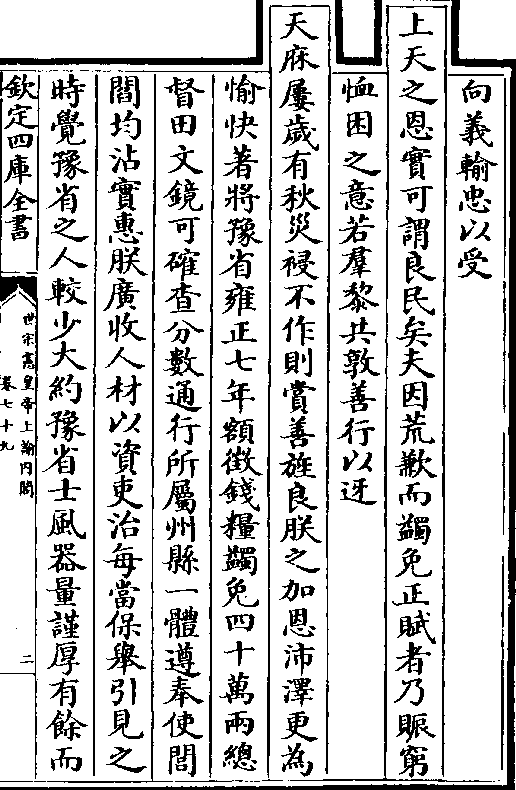 向義輸忠以受
上天之恩實可謂良民矣夫因荒歉而蠲免正賦者乃賑窮
恤困之意若羣黎共敦善行以迓
天庥屢歲有秋災祲不作則賞善旌良朕之加恩沛澤更為
愉快著將豫省雍正七年額徵錢糧蠲免四十萬兩總
督田文鏡可確查分數通行所屬州縣一體遵奉使閭
閻均沾實惠朕廣收人材以資吏治每當保舉引見之
時覺豫省之人較少大約豫省士風器量謹厚有餘而
欽定四庫全書
世宗憲皇帝上諭內閣
卷七十九
二